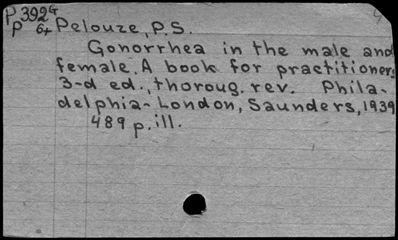 P392G
P 6+ Pelouze, P.S.
Gonorrhea in the male and
female. A book for practitioners
3-d ed., thoroug. rev. Phila-
delphia-London, Saunders, 1939
489 p. ill.